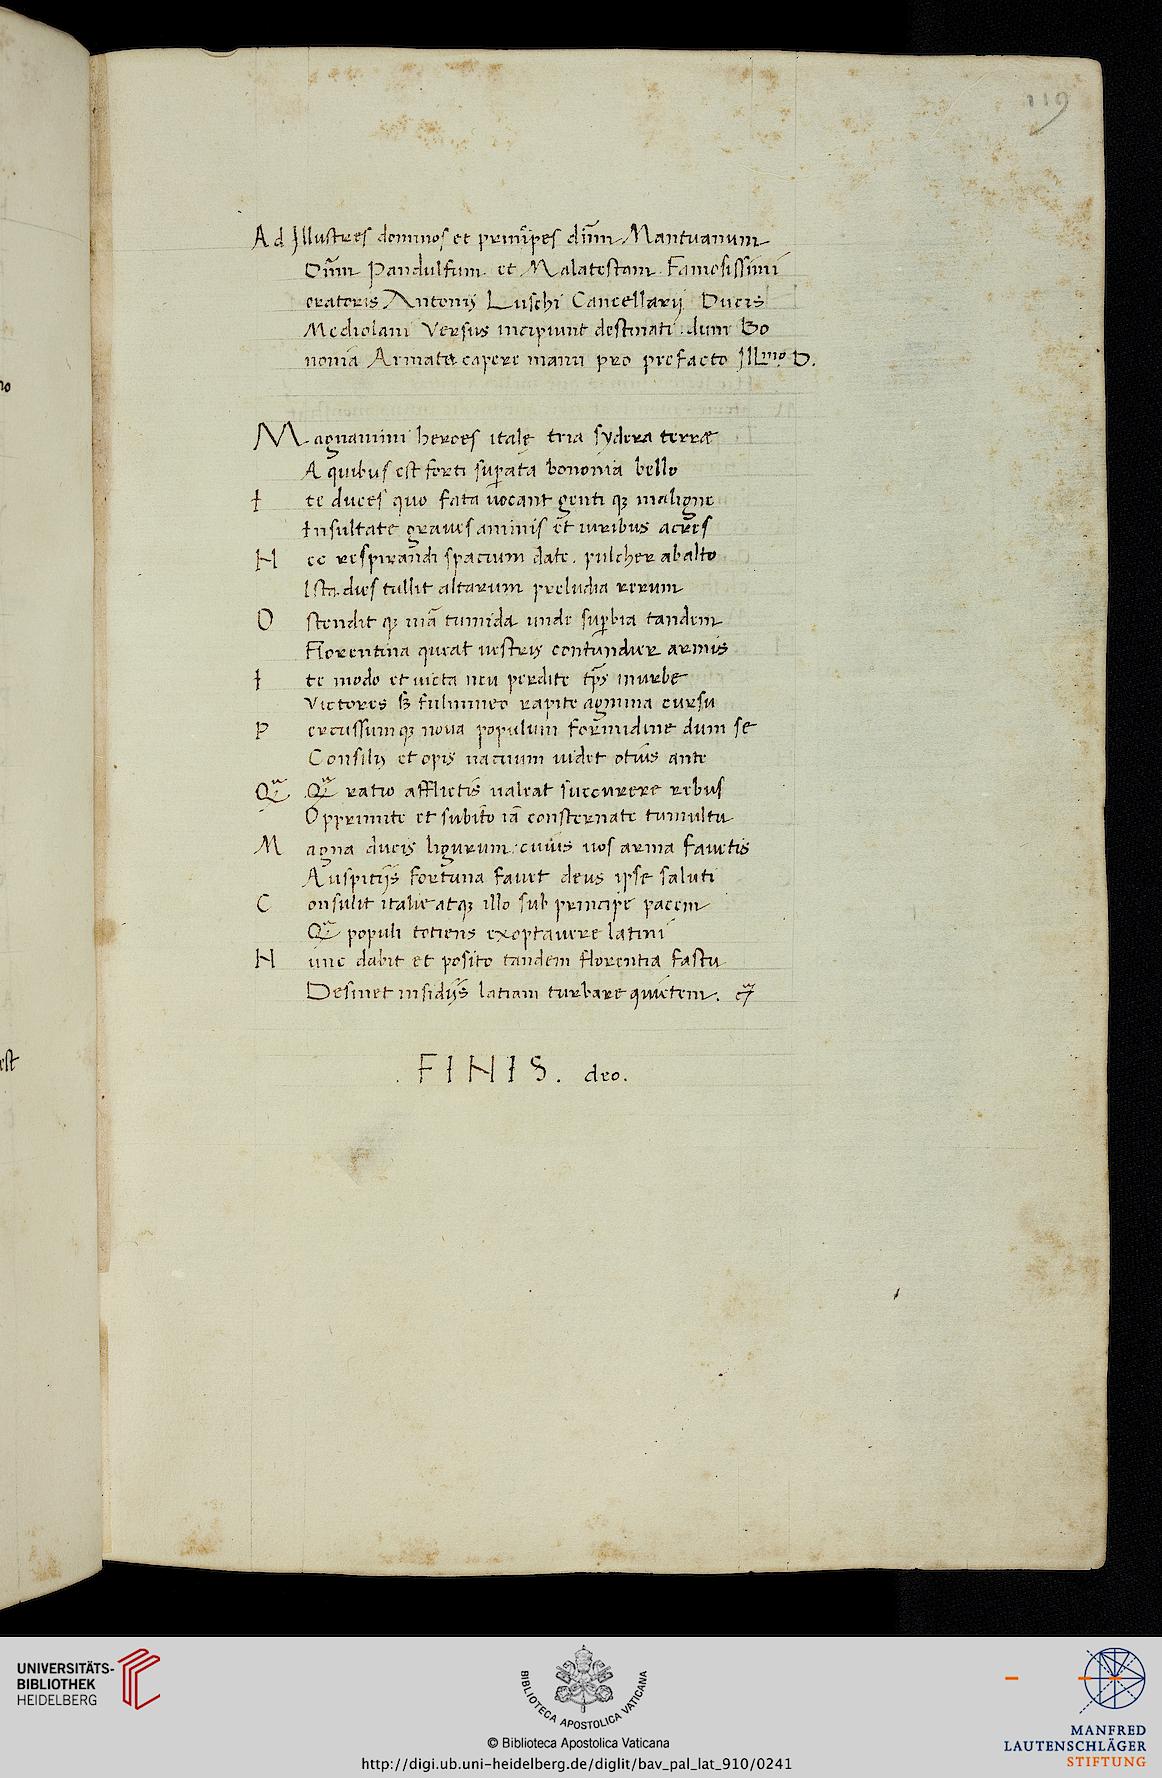 119
Ad Jllustres dominos et principes dn̄m Mantuanum
Dn̄m Pandulfum et Malatestam Famosissimi
oratoris Antonij Luschi Cancellarij Ducis
Mediolani Versus incipiunt destinati dum Bo
nonia Armata capere manu pro prefacto Jllmo. D.
Magnanimi heroes italę tria sydera terræ
A quibus est forti suꝑata bononia bello
I te duces quo fata uocant genti qꝫ maligne
Insultate graues animis et uiribus acres
N ec respirandi spacium date. pulcher ab alto
Ista dies tullit altarum preludia rerum
O stendit qꝫ uiā tumida unde suꝑbia tandem
Florentina queat uestris contundier armis
I te modo et uicta neu perdite tp̄s in urbe
Victores sꝫ fulmineo rapite agmina cursu
P ercussumqꝫ noua populum formidine dum se
Consilij et opis uacuum uidet otius ante
Qᷓ Qᷓ ratio afflictis ualeat succurere rebus
Opprimite et subito iā consternate tumultu
M agna ducis ligurum cuius uos arma fauetis
Auspitijs fortuna fauet deus ipse saluti
C onsulit italie atqꝫ illo sub principe pacem
Qᷓ populi totiens exoptauere latini
N unc dabit et posito tandem florentia fastu
Desinet insidijs latiam turbare quietem.
. FINIS. deo.
est
UNIVERSITÄTS-
BIBLIOTHEK
HEIDELBERG
BIBLIOTECA APOSTOLICA VATICANA
© Biblioteca Apostolica Vaticana
http://digi.ub.uni-heidelberg.de/diglit/bav_pal_lat_910/0241
MANFRED
LAUTENSCHLÄGER
STIFTUNG